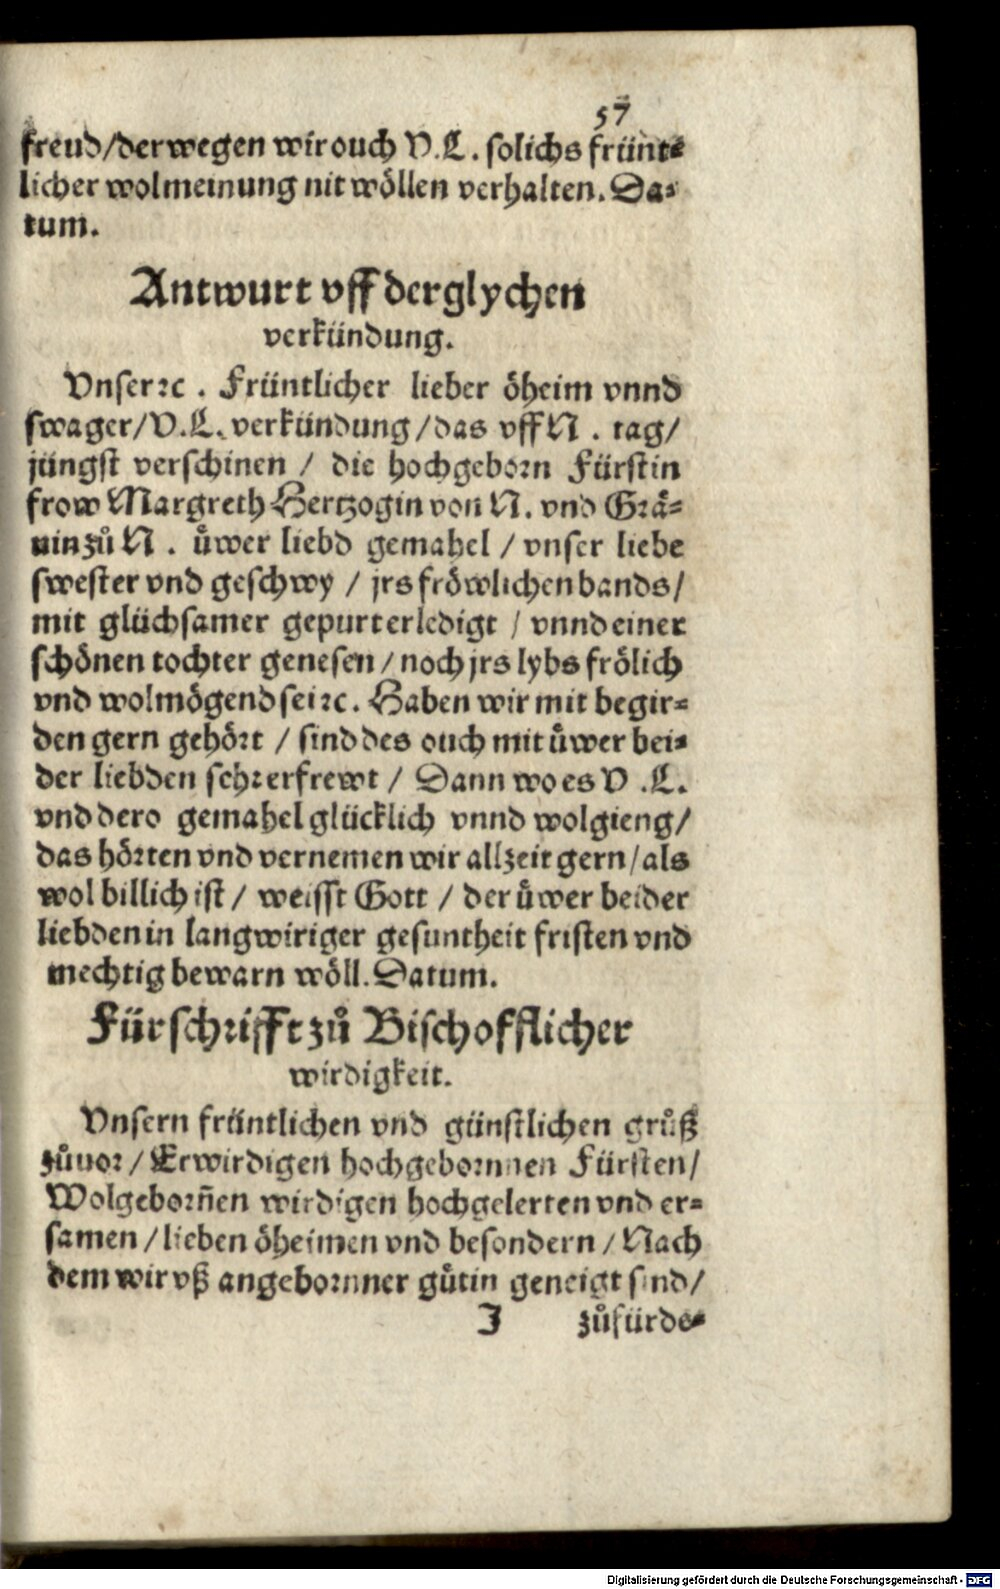 57
freud/derwegen wir ouch V.L. solichs frünt⸗
licher wolmeinung nit wöllen verhalten. Da⸗
tum.
Antwurt vff derglychen
verkündung.
Vnser ꝛc. Früntlicher lieber öheim vnnd
swager/V.L. verkündung/das vff N. tag/
jüngst verschinen / die hochgeborn Fürstin
frow Margreth Hertzogin von N. vnd Grä⸗
uin zů N. ůwer liebd gemahel / vnser liebe
swester vnd geschwy / jrs fröwlichen bands/
mit glüchsamer gepurt erledigt / vnnd einer
schönen tochter genesen / noch jrs lybs frölich
vnd wolmögend sei ꝛc. Haben wir mit begir⸗
den gern gehört / sind des ouch mit ůwer bei⸗
der liebden sehr erfrewt / Dann wo es V.L.
vnd dero gemahel glücklich vnnd wolgieng/
das hörten vnd vernemen wir allzeit gern/als
wol billich ist / weisst Gott / der ůwer beider
liebden in langwiriger gesuntheit fristen vnd
mechtig bewarn wöll. Datum.
Fürschrifft zů Bischofflicher
wirdigkeit.
Vnsern früntlichen vnd günstlichen grůß
zůuor / Erwirdigen hochgebornnen Fürsten/
Wolgeborñen wirdigen hochgelerten vnd er⸗
samen / lieben öheimen vnd besondern / Nach
dem wir vß angebornner gůtin geneigt sind/
J zůfürde⸗
Digitalisierung gefördert durch die Deutsche Forschungsgemeinschaft - DFG